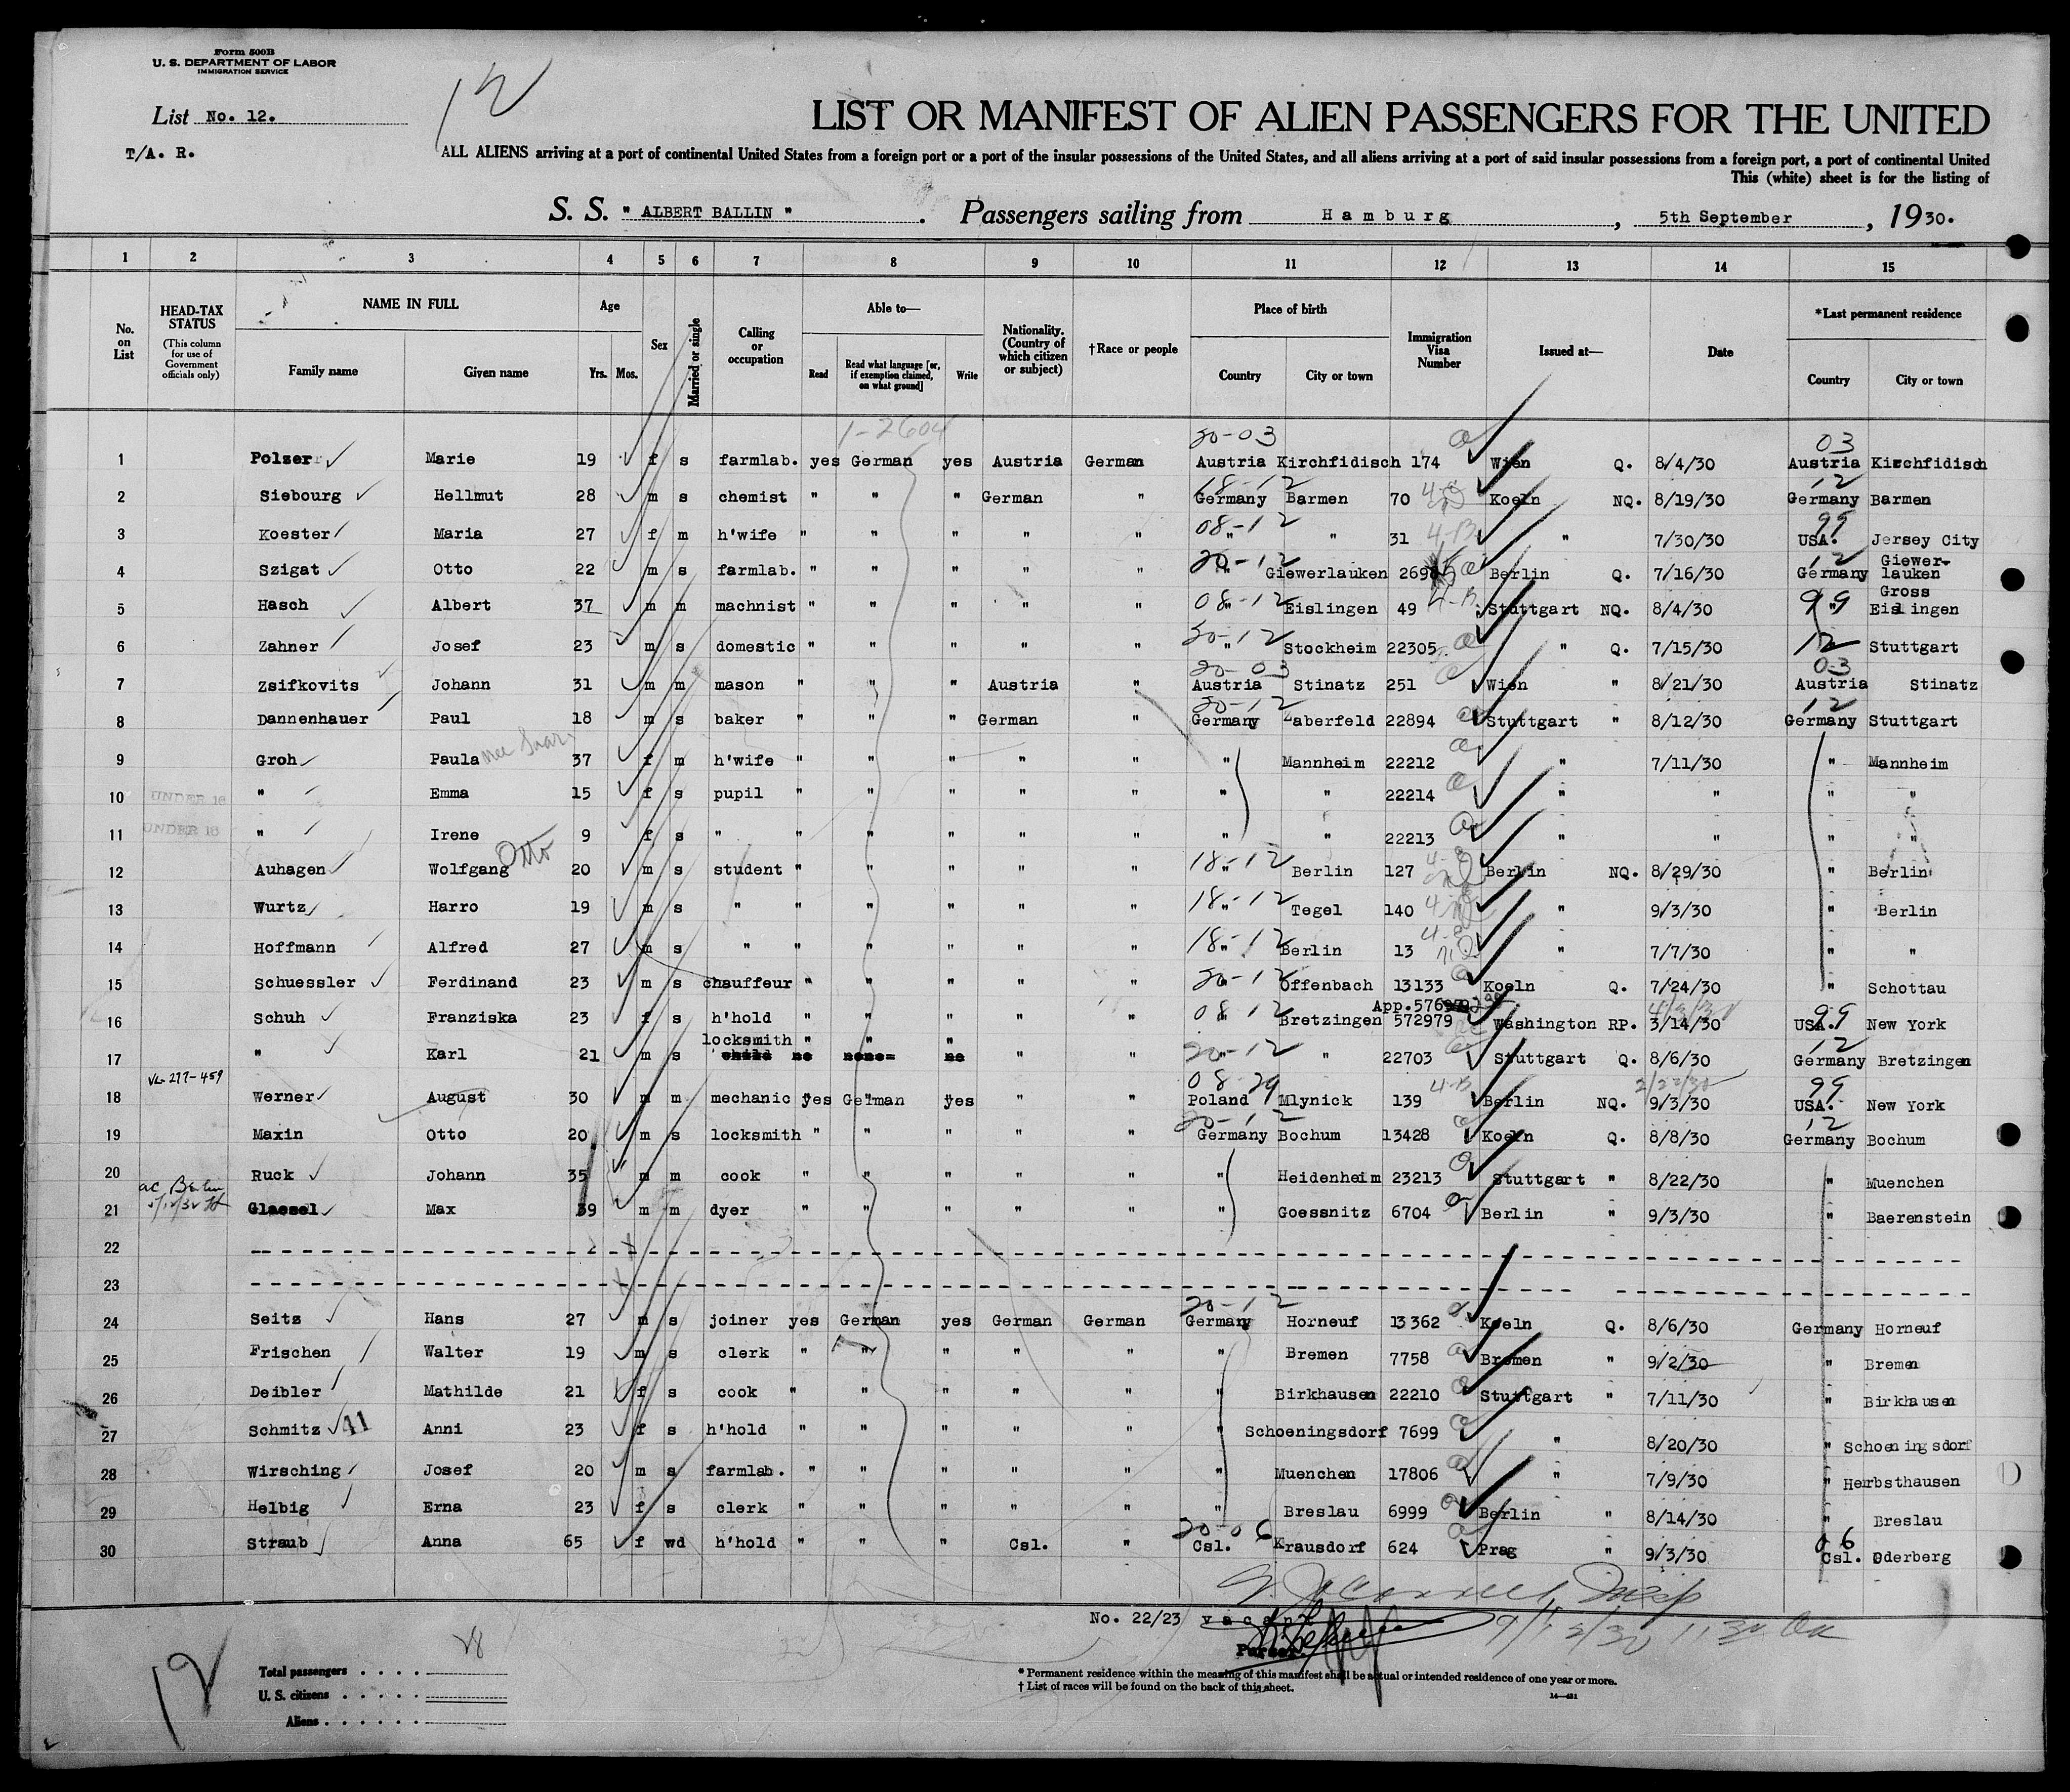 Form 500B
U. S. DEPARTMENT OF LABOR
IMMIGRATION SERVICE
12
List No. 12.
T/A. R.
LIST OR MANIFEST OF ALIEN PASSENGERS FOR THE UNITED
ALL ALIENS arriving at a port of continental United States from a foreign port or a port of the insular possessions of the United States, and all aliens arriving at a port of said insular possessions from a foreign port, a port of continental United
This (white) sheet is for the listing of
S. S. " ALBERT BALLIN " . Passengers sailing from Hamburg , 5th September , 19 30.
1 2 3 4 5 6 7 8 9 10 11 12 13 14 15
No. on List HEAD-TAX STATUS (This column for use of Government officials only) NAME IN FULL Family name Given name Age Yrs. Mos. Sex Married or single Calling or occupation Able to— Read Read what language [or, if exemption claimed, on what ground] Write Nationality. (Country of which citizen or subject) †Race or people Place of birth Country City or town Immigration Visa Number Issued at— Date *Last permanent residence Country City or town
1-2604 20-03 03
1 Polzer Marie 19 f s farmlab. yes German yes Austria German Austria Kirchfidisch 174 Wien Q. 8/4/30 Austria Kirchfidisch
18-12 12
2 Siebourg Hellmut 28 m s chemist " " " German " Germany Barmen 70 Koeln NQ. 8/19/30 Germany Barmen
08-12 99
3 Koester Maria 27 f m h'wife " " " " " " " 31 4-B " 7/30/30 USA. Jersey City
20-12 12
4 Szigat Otto 22 m s farmlab. " " " " " " Giewerlauken Berlin Q. 7/16/30 Germany Giewer-lauken
08-12 99
5 Hasch Albert 37 m m machnist " " " " " " Eislingen 49 4-B Stuttgart NQ. 8/4/30 " Gross Eislingen
20-12 12
6 Zahner Josef 23 m s domestic " " " " " " Stockheim 22305 " Q. 7/15/30 Stuttgart
20-03 03
7 Zsifkovits Johann 31 m m mason " " " Austria " Austria Stinatz 251 Wien " 8/21/30 Austria Stinatz
20-12 12
8 Dannenhauer Paul 18 m s baker " " " German " Germany Zaberfeld 22894 Stuttgart " 8/12/30 Germany Stuttgart
9 Groh Paula nee 37 f m h'wife " " " " " " Mannheim 22212 " 7/11/30 " Mannheim
10 UNDER 16 " Emma 15 f s pupil " " " " " " " 22214 " " " "
11 UNDER 16 " Irene 9 f s " " " " " " " " 22213 " " " "
Otto 18-12
12 Auhagen Wolfgang 20 m s student " " " " " " Berlin 127 Berlin NQ. 8/29/30 " Berlin
18-12
13 Wurtz Harro 19 m s " " " " " " " Tegel 140 " 9/3/30 " Berlin
18-12
14 Hoffmann Alfred 27 m s " " " " " " " Berlin 13 " 7/7/30 " "
20-12
15 Schuessler Ferdinand 23 m s chauffeur " " " " " " Offenbach 13133 Koeln Q. 7/24/30 " Schottau
08-12 99
16 Schuh Franziska 23 f s h'hold " " " " " " Bretzingen 572979 Washington RP. 3/14/30 USA. New York
locksmith " " " 20-12 12
17 " Karl 21 m s child no none= no " " " " 22703 Stuttgart Q. 8/6/30 Germany Bretzingen
VL-277-459 08-29 4-B 99
18 Werner August 30 m m mechanic yes German yes " " Poland Mlynick 139 Berlin NQ. 9/3/30 USA. New York
20-12 12
19 Maxin Otto 20 m s locksmith " " " " " Germany Bochum 13428 Koeln Q. 8/8/30 Germany Bochum
20 Ruck Johann 35 m m cook " " " " " " Heidenheim 23213 Stuttgart " 8/22/30 " Muenchen
21 Glaesel Max 39 m m dyer " " " " " " Goessnitz 6704 Berlin " 9/3/30 " Baerenstein
22
23
20-12
24 Seitz Hans 27 m s joiner yes German yes German German Germany Horneuf 13362 Koeln Q. 8/6/30 Germany Horneuf
25 Frischen Walter 19 m s clerk " " " " " " Bremen 7758 Bremen " 9/2/30 " Bremen
26 Deibler Mathilde 21 f s cook " " " " " " Birkhausen 22210 Stuttgart " 7/11/30 " Birkhausen
27 Schmitz 41 Anni 23 f s h'hold " " " " " " Schoeningsdorf 7699 " 8/20/30 " Schoeningsdorf
28 Wirsching Josef 20 m s farmlab. " " " " " " Muenchen 17806 " 7/9/30 " Herbsthausen
29 Helbig Erna 23 f s clerk " " " " " " Breslau 6999 Berlin " 8/14/30 " Breslau
20-06 06
30 Straub Anna 65 f wd h'hold " " " Csl. " Csl. Krausdorf 624 Prag " 9/3/30 Csl. Oderberg
No. 22/23 vacant
Purser.
12
Total passengers 28
U. S. citizens
Aliens
* Permanent residence within the meaning of this manifest shall be actual or intended residence of one year or more.
† List of races will be found on the back of this sheet.
14—421